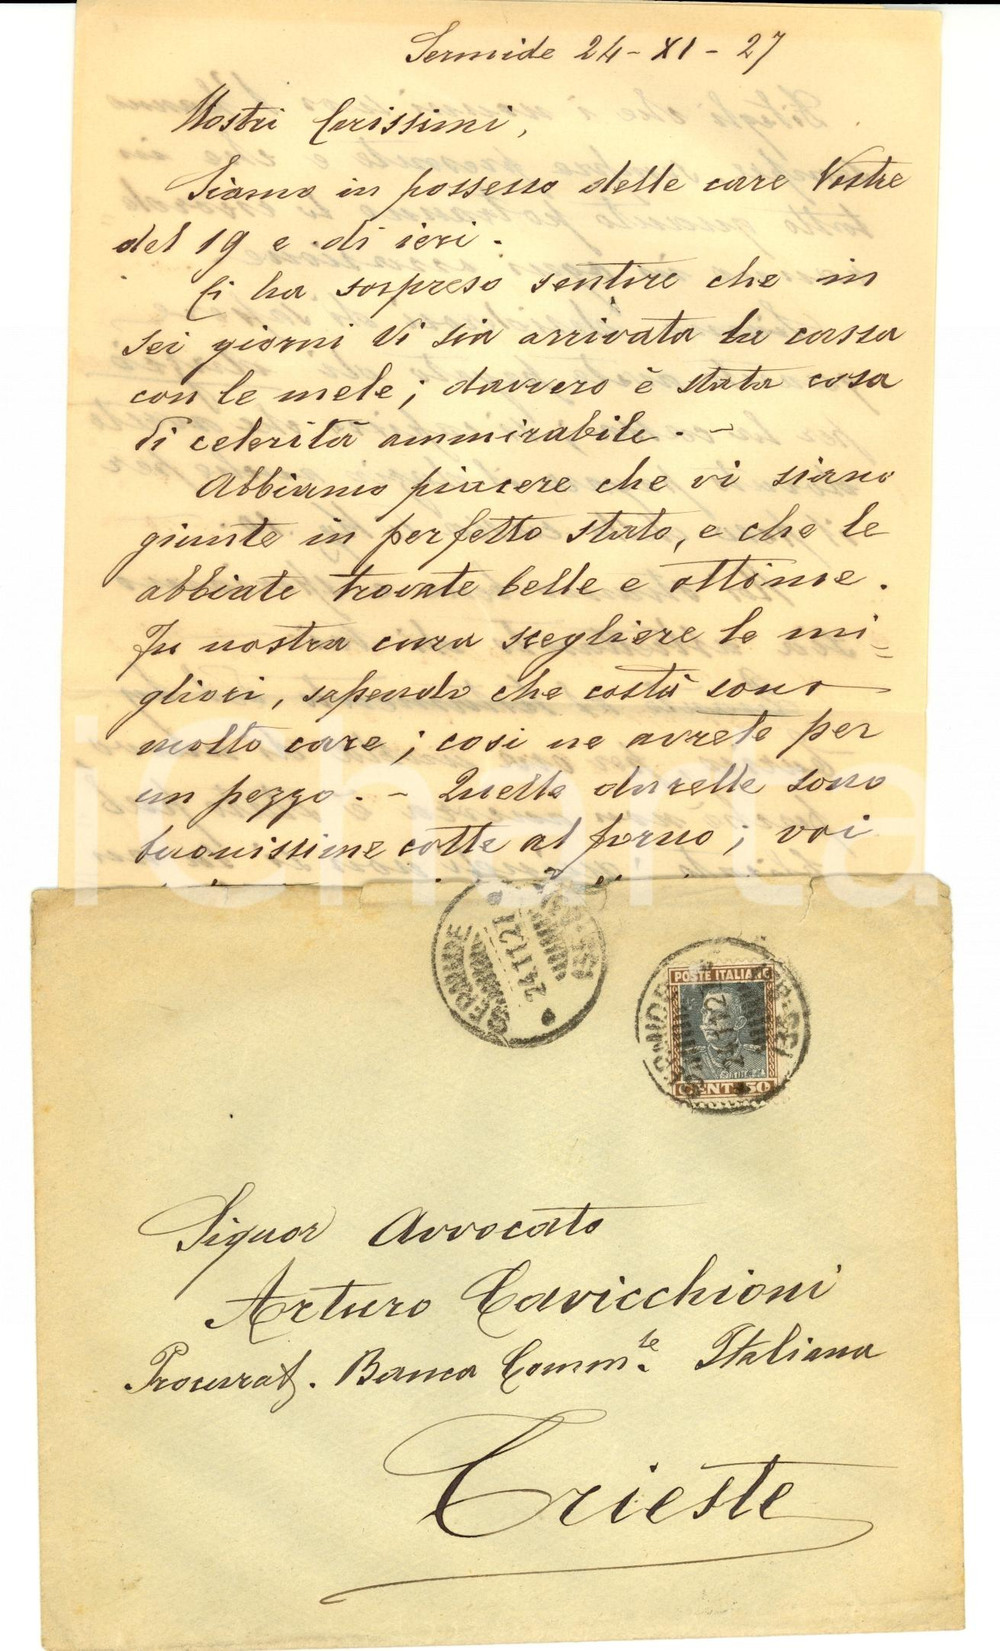 Sermide 24-XI-27
Nostri Carissimi,
Siamo in possesso delle care Vostre
del 19 e di ieri.
Ci ha sorpreso sentire che in
sei giorni Vi sia arrivata la cassa
con le mele; davvero è stata cosa
di celerità ammirabile. -
Abbiamo piacere che vi siano
giunte in perfetto stato, e che le
abbiate trovate belle e ottime.
Fu nostra cura scegliere le mi=
gliori, sapendo che costà sono
molto care; così ne avrete per
un pezzo. - Quelle durelle sono
buonissime cotte al forno; voi
iCharta
SERMIDE
24.11.27
POSTE ITALIANE
24.11.27
CENT. 50
Signor Avvocato
Arturo Cavicchioni
Procurat. Banca Comm.le Italiana
Trieste